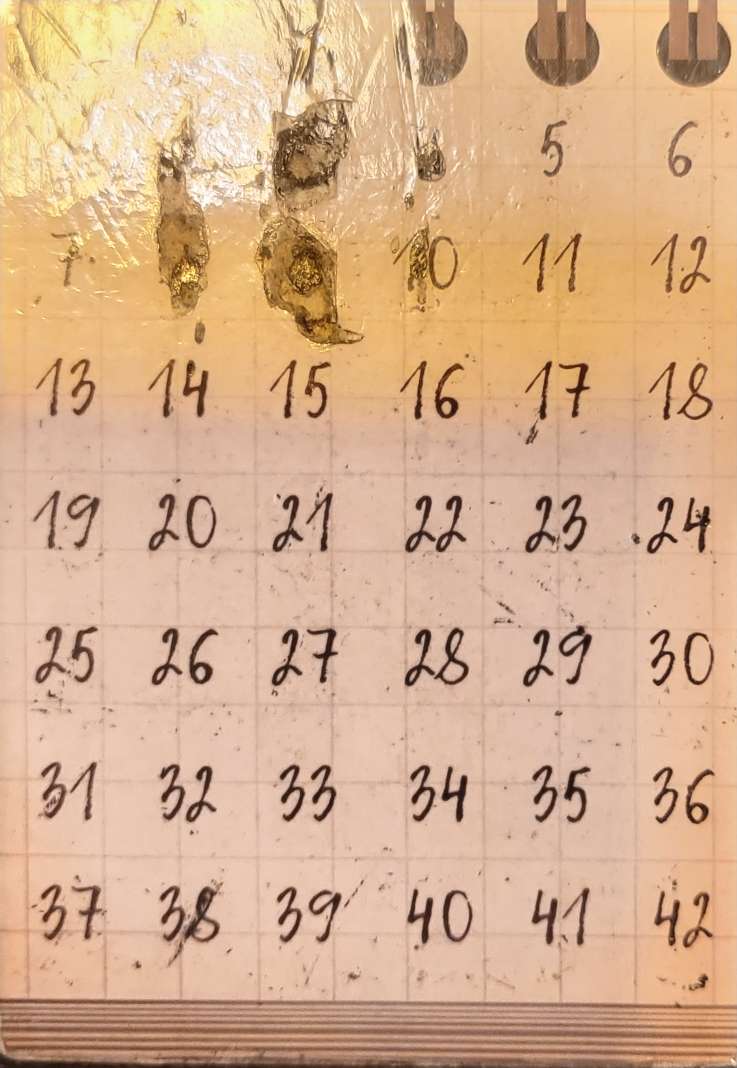 5 6
7 10 11 12
13 14 15 16 17 18
19 20 21 22 23 24
25 26 27 28 29 30
31 32 33 34 35 36
37 38 39 40 41 42